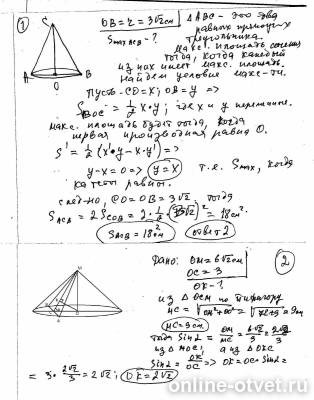 1
OB = r = 3√2 см
S max ACB - ?
C
A
O
B
△ABC - это два
равных прямоуг.
треугольника.
макс. площадь сечения
тогда, когда каждый
из них имеет макс. площадь.
Найдем условие макс-ти.
Пусть CO = x; OB = y =>
S BOC = 1/2 x·y; где x и y переменные.
макс. площадь будет тогда, когда
первая производная равна 0.
S' = 1/2 (x'·y - x·y') =>
y - x = 0 => y = x т.е. S max, когда
катеты равны.
след-но, CO = OB = 3√2, тогда
S ACB = 2 S COB = 2·1/2·(3√2)² = 18 см²
S ACB = 18 см²
ответ 2
2
Дано: OM = 6√2 см
OC = 3
OK - ?
из △OCM по Пифагору
MC = √CM² + OC² = √72+9 = 9 см
MC = 9 см
тогда Sin α = OM/MC = 6√2/9 = 2√2/3
из △MOC; а из △OKC
Sin α = OK/OC => OK = OC·Sin α =
= 3·2√2/3 = 2√2; OK = 2√2
online-otvet.ru